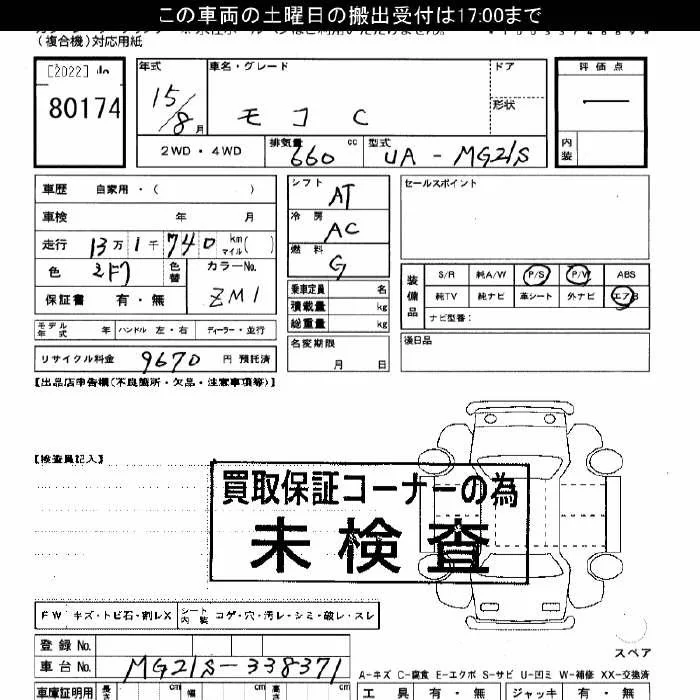 この車両の土曜日の搬出受付は17:00まで
(複合機)対応用紙
[2022]
80174
年式
15/8月
車名・グレード
モコ C
ドア
形状
評価点
―
内装
2WD・4WD
排気量 660 cc
型式 UA-MG21S
車歴 自家用・( )
車検 年 月
走行 13万1千740 km マイル( )
色
色替
カラーNo. ZM1
保証書 有・無
シフト AT
冷房 AC
燃料 G
乗車定員 名
積載量 kg
総重量 kg
セールスポイント
装備品
S/R 純A/W P/S P/W ABS
純TV 純ナビ 革シート 外ナビ エアB
ナビ型番:
モデル年式 年 ハンドル 左・右 ディーラー・並行
名変期限
月 日
後日品
リサイクル料金 9670 円 預託済
【出品店申告欄(不良箇所・欠品・注意事項等)】
【検査員記入】
買取保証コーナーの為
未検査
FW キズ・トビ石・割レX
シート内装 コゲ・穴・汚レ・シミ・破レ・スレ
スペア
登録No.
車台No. MG21S-338371
A-キズ C-腐食 E-エクボ S-サビ U-凹ミ W-補修 XX-交換済
車庫証明用 長さ cm 幅 cm cm
工具 有・無 ジャッキ 有・無